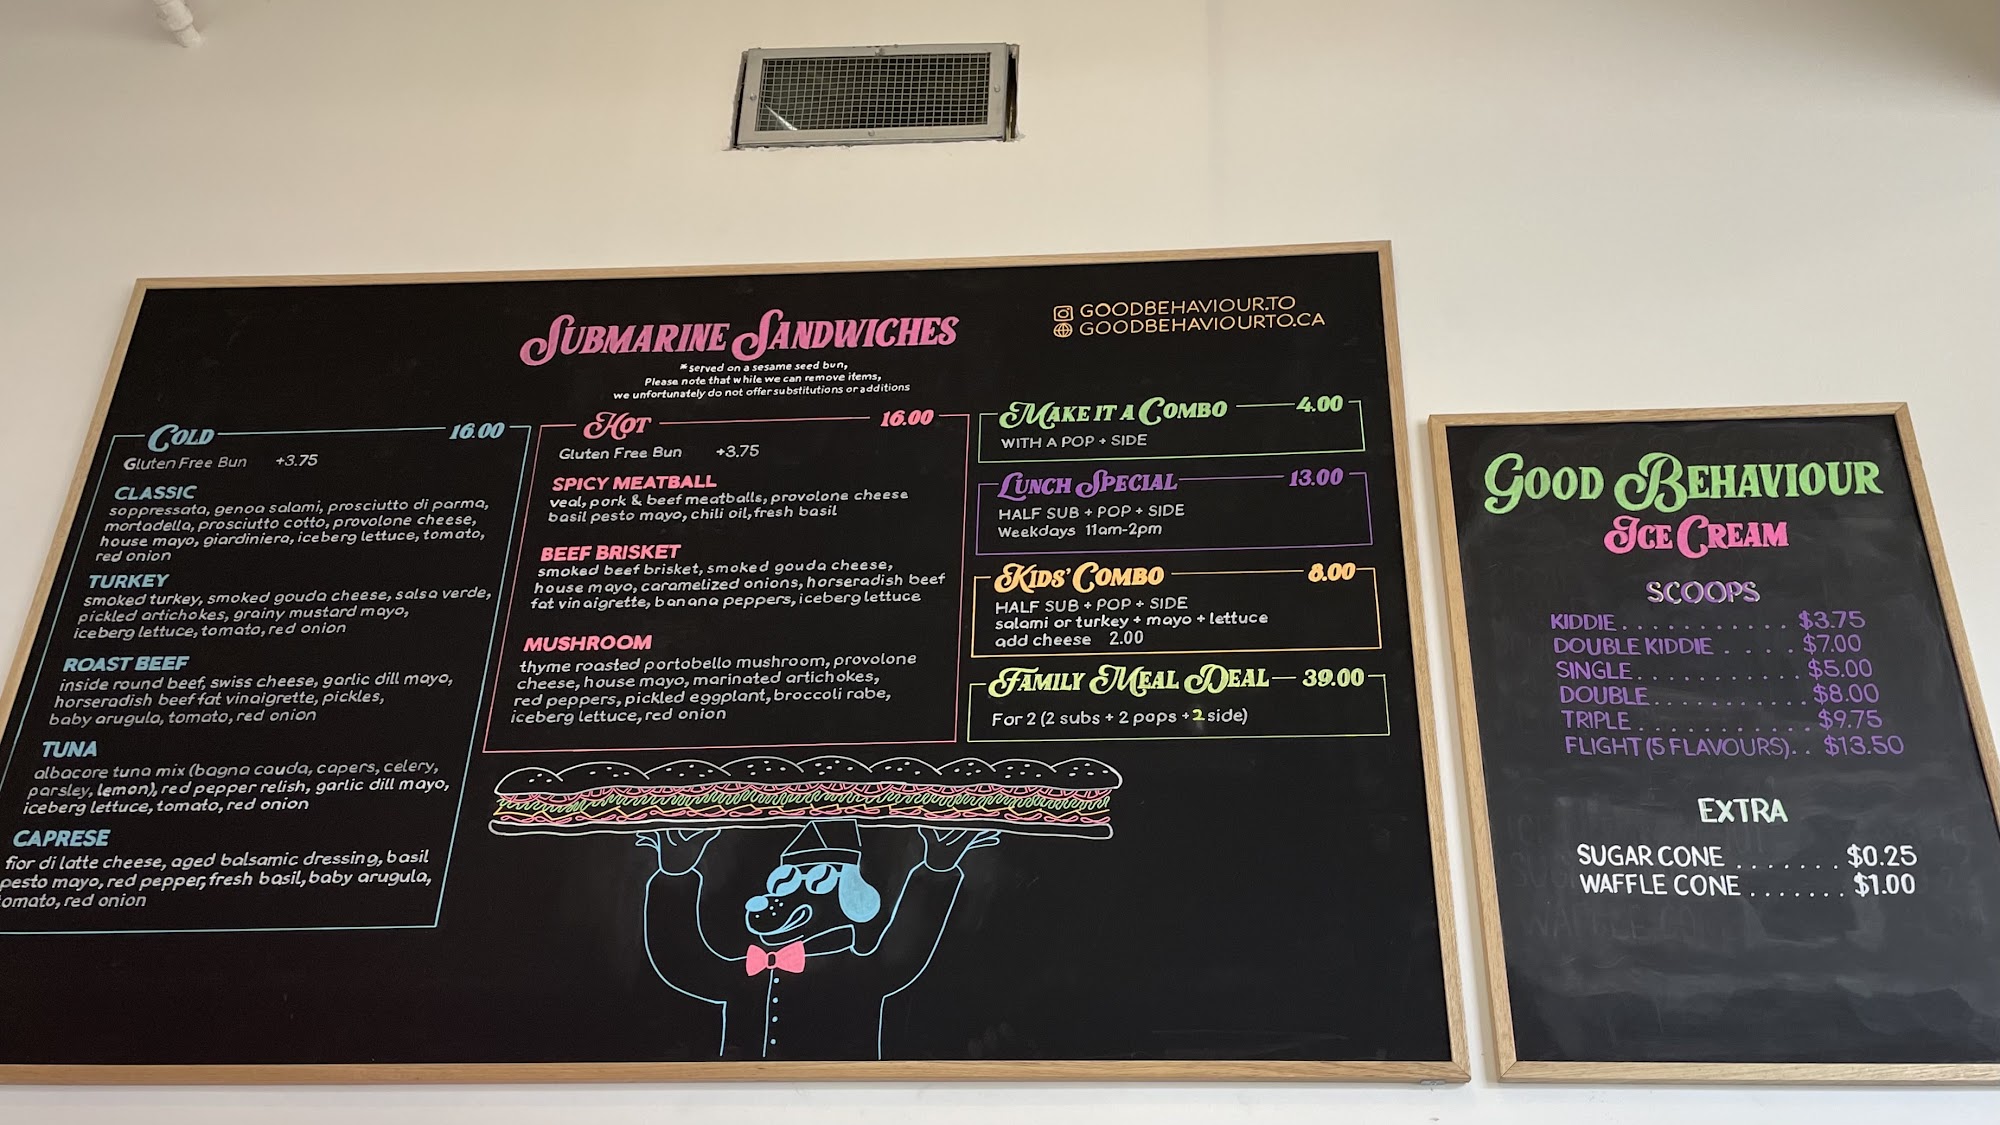 SUBMARINE SANDWICHES
*served on a sesame seed bun,
Please note that while we can remove items,
we unfortunately do not offer substitutions or additions
GOODBEHAVIOUR.TO
GOODBEHAVIOURTO.CA
COLD 16.00
Gluten Free Bun +3.75
CLASSIC
soppressata, genoa salami, prosciutto di parma,
mortadella, prosciutto cotto, provolone cheese,
house mayo, giardiniera, iceberg lettuce, tomato,
red onion
TURKEY
smoked turkey, smoked gouda cheese, salsa verde,
pickled artichokes, grainy mustard mayo,
iceberg lettuce, tomato, red onion
ROAST BEEF
inside round beef, swiss cheese, garlic dill mayo,
horseradish beef fat vinaigrette, pickles,
baby arugula, tomato, red onion
TUNA
albacore tuna mix (bagna cauda, capers, celery,
parsley, lemon), red pepper relish, garlic dill mayo,
iceberg lettuce, tomato, red onion
CAPRESE
fior di latte cheese, aged balsamic dressing, basil
pesto mayo, red pepper, fresh basil, baby arugula,
omato, red onion
HOT 16.00
Gluten Free Bun +3.75
SPICY MEATBALL
veal, pork & beef meatballs, provolone cheese
basil pesto mayo, chili oil, fresh basil
BEEF BRISKET
smoked beef brisket, smoked gouda cheese,
house mayo, caramelized onions, horseradish beef
fat vinaigrette, banana peppers, iceberg lettuce
MUSHROOM
thyme roasted portobello mushroom, provolone
cheese, house mayo, marinated artichokes,
red peppers, pickled eggplant, broccoli rabe,
iceberg lettuce, red onion
MAKE IT A COMBO 4.00
WITH A POP + SIDE
LUNCH SPECIAL 13.00
HALF SUB + POP + SIDE
Weekdays 11am-2pm
KIDS' COMBO 8.00
HALF SUB + POP + SIDE
salami or turkey + mayo + lettuce
add cheese 2.00
FAMILY MEAL DEAL 39.00
For 2 (2 subs + 2 pops + 2 side)
GOOD BEHAVIOUR
ICE CREAM
SCOOPS
KIDDIE............ $3.75
DOUBLE KIDDIE .... $7.00
SINGLE............ $5.00
DOUBLE............ $8.00
TRIPLE............ $9.75
FLIGHT (5 FLAVOURS).. $13.50
EXTRA
SUGAR CONE ....... $0.25
WAFFLE CONE ....... $1.00